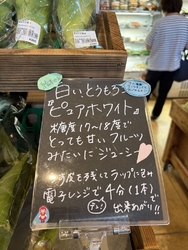 白いとうもろこし
『ピュアホワイト』
糖度17〜18度で
とっても甘い フルーツ
みたいにジューシー
薄皮を残してラップに包み
電子レンジで4分(1本)で
チン!
出来あがり!!